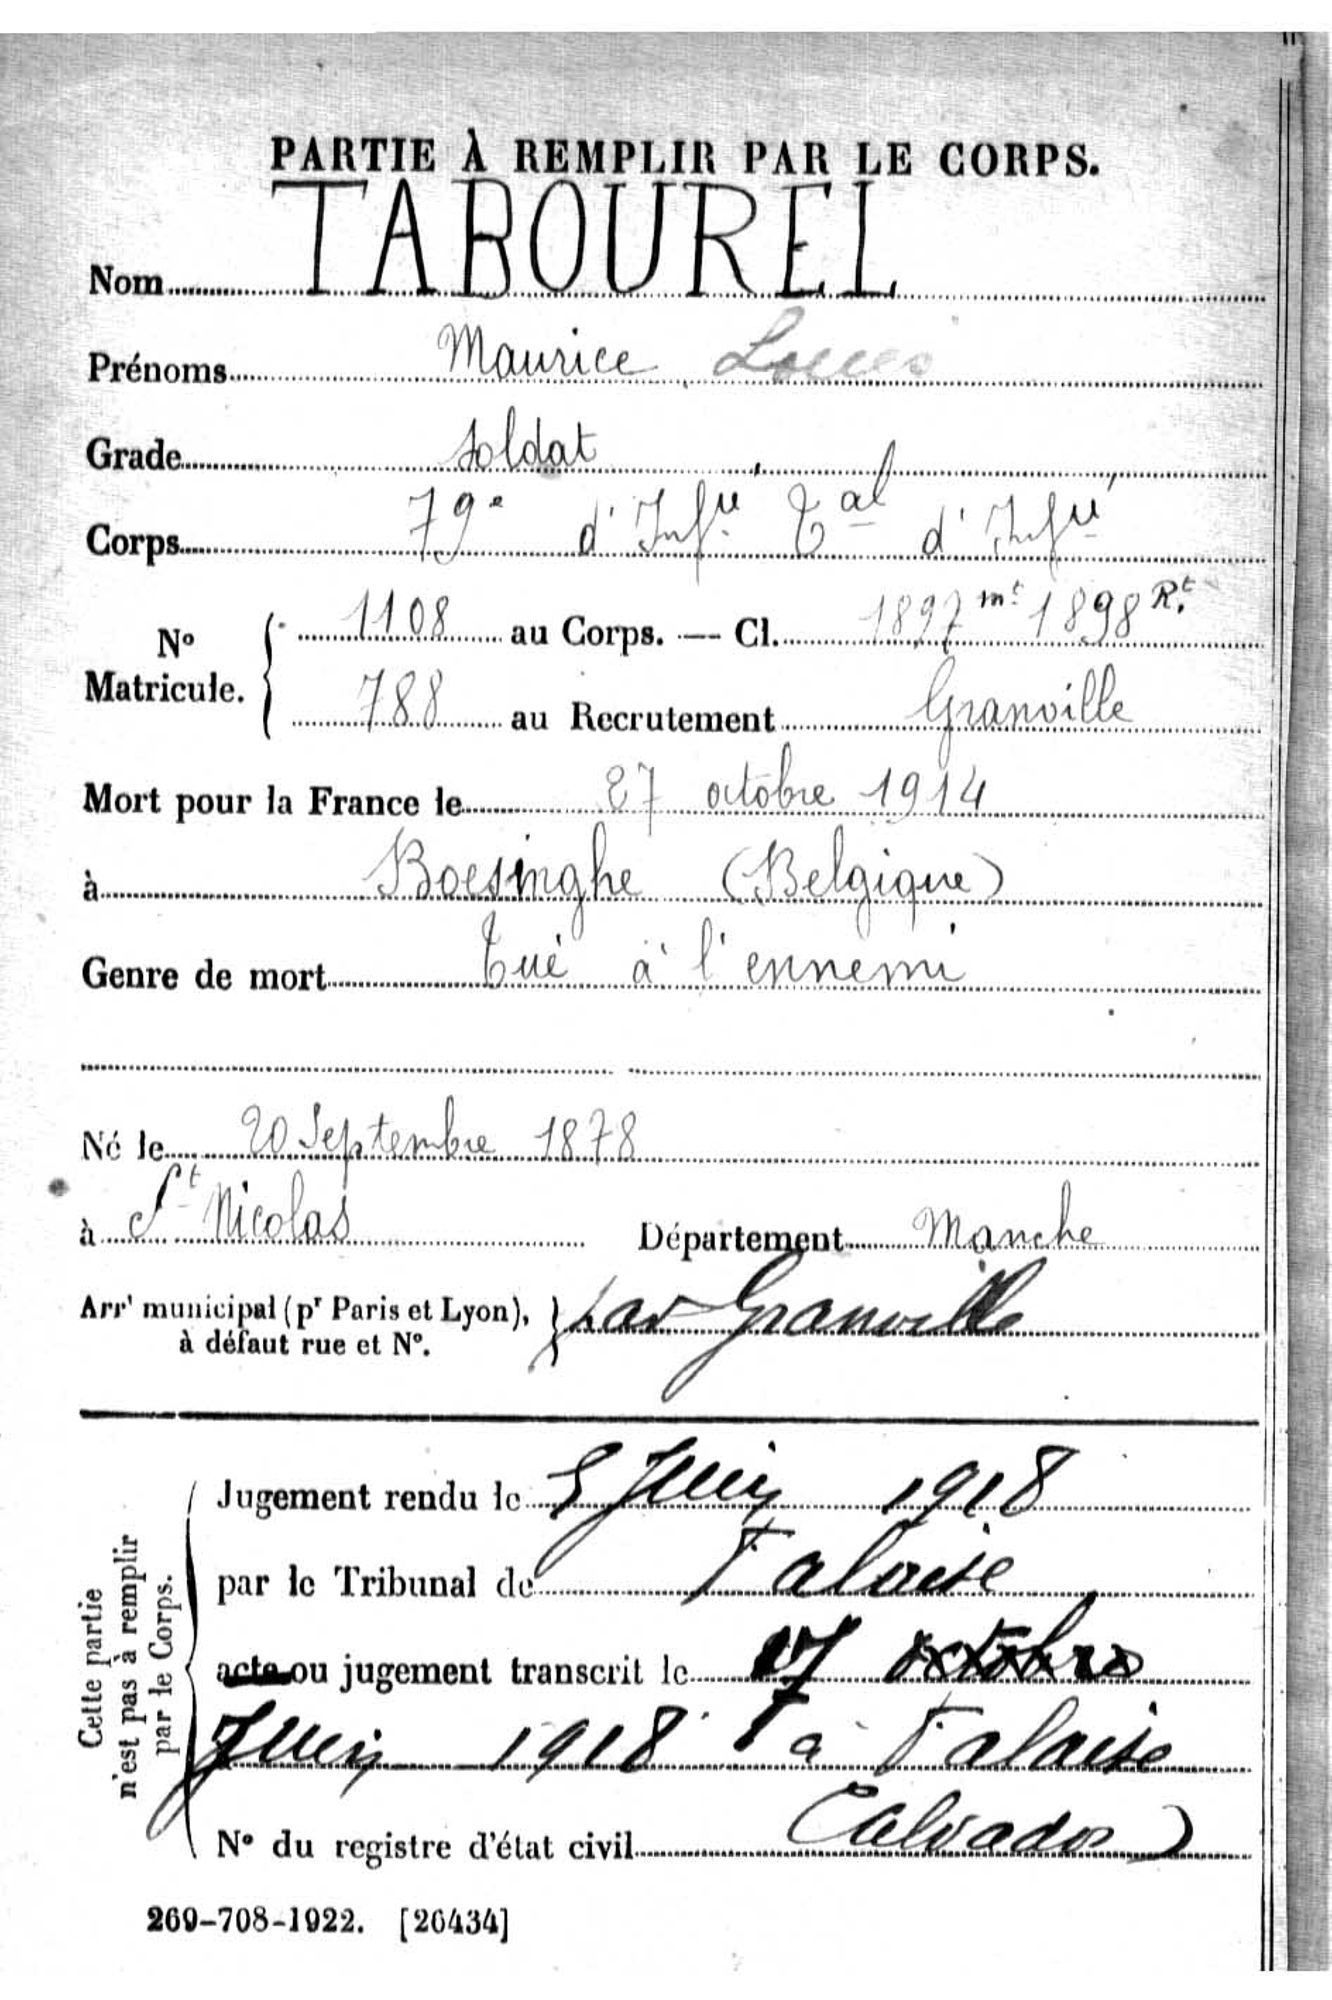 PARTIE À REMPLIR PAR LE CORPS.
Nom TABOUREL
Prénoms Maurice Louis
Grade Soldat
Corps 79e d'Infie Tal d'Infie
No Matricule. { 1108 au Corps. — Cl. 1897 mt 1898 Rt.
788 au Recrutement Granville
Mort pour la France le 27 octobre 1914
à Boesinghe (Belgique)
Genre de mort Tué à l'ennemi
Né le 20 Septembre 1878
à St Nicolas Département Manche
Arrt municipal (pr Paris et Lyon), } par Granville
à défaut rue et No.
Cette partie
n'est pas à remplir
par le Corps.
Jugement rendu le 5 Juin 1918
par le Tribunal de Falaise
acte ou jugement transcrit le 17 octobre
Juin 1918 à Falaise
No du registre d'état civil (Calvados)
269-708-1922. [26434]